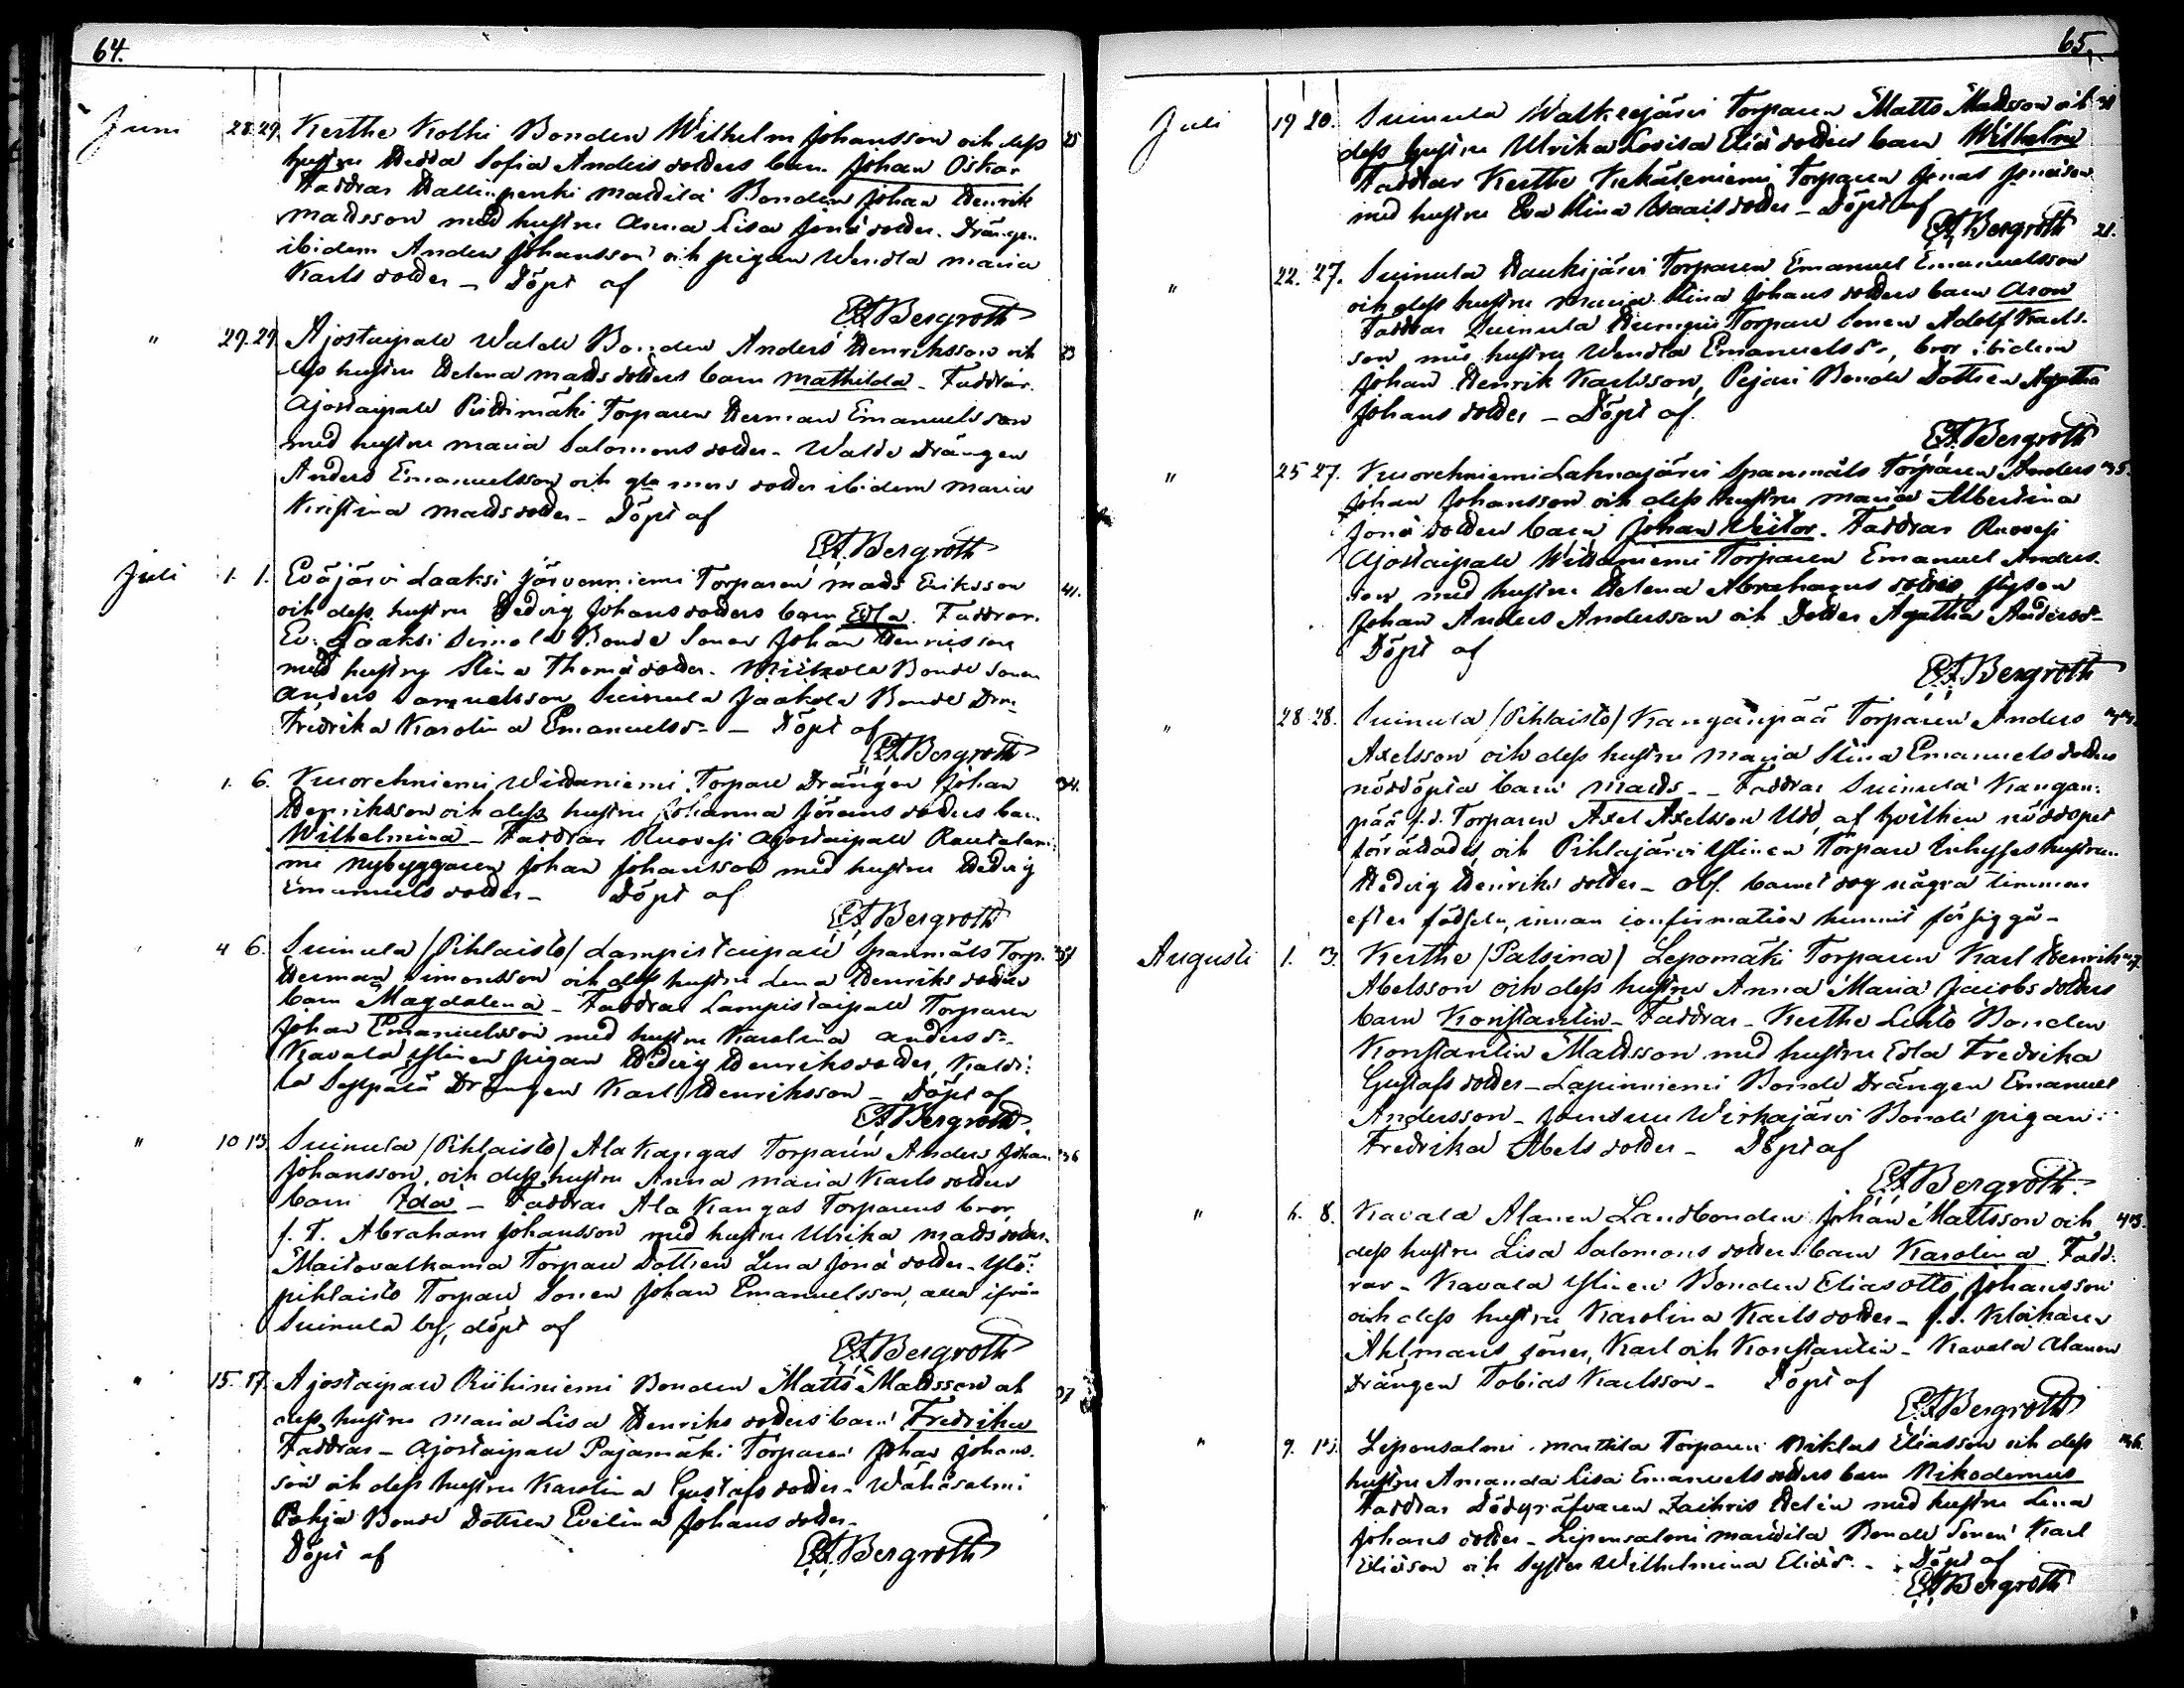 64.
Juni 28. 29. Kerthe Kolhi Bonden Wilhelm Johansson och dess 25
hustru Hedda Sofia Anders dotters barn Johan Oskar
Faddrar Hallinpenki Mattila Bonden Johan Henrik
Mattsson med hustru Anna Lisa Jonä dotter. Drängen
ibidem Anders Johansson och pigan Wendla Maria
Karls dotter – Döpt af
E.A. Bergroth
" 29. 29. Ajostaipale Walde Bonden Anders Henriksson och 23
dess hustru Helena Matts dotters barn Mathilda – Faddrar.
Ajostaipale Pirttimäki Torparen Herman Emanuelsson
med hustru Maria Salomons dotter – Walde Drängen
Anders Emanuelsson och gla mors dotter ibidem Maria
Kristina Matts dotter – Döpt af
E.A. Bergroth
Juli 1. 1. Eväjärvi Laaksi Järvenniemi Torparen Matts Eriksson 41.
och dess hustru Hedvig Johans dotters barn Edla. Faddrar.
Ev. Laaksi Simola Bonde Sonen Johan Henricsson
med hustru Stina Thomä dotter. Mickola Bonde Sonen
Anders Samuelsson Suinula Jaakola Bonde Dr.
Fredrika Karolina Emanuelsd. – Döpt af
E.A. Bergroth
1. 6. Kuorehniemi Widdaniemi Torpare Drängen Johan 34.
Henriksson och dess hustru Johanna Jörans dotters barn
Wilhelmina – Faddrar Ruovesi Ajostaipale Rautalam:
mi Nybyggaren Johan Johansson med hustru Hedvig
Emanuels dotter – Döpt af
E.A. Bergroth
4 6. Suinula /Pihlaisto/ Lampistaipale Spanmåls Torp. 37
Herman Simonsson och dess hustru Lena Henriks dotters
barn Magdalena – Faddrar Lampistaipale Torparen
Johan Emanuelsson med hustru Karolina Andersd.
Kavala Ylinen pigan Hedvig Henriksdotter, Kaldi:
la Seppälä Drängen Karl Henriksson – Döpt af
E.A. Bergroth.
" 10 13. Suinula /Pihlaisto/ Ala Kangas Torparen Anders Johan 36
Johansson, och dess hustru Anna Maria Karls dotters
barn Ida – Faddrar Ala Kangas Torparens bror,
f. T. Abraham Johansson med hustru Ulrika Matts dotter.
Maitovalkama Torpare Dottren Lena Jonä dotter – Ylö:
pihlaisto Torpare Sonen Johan Emanuelsson, alla ifrån
Suinula by, döpt af
E.A. Bergroth
" 15. 17. Ajostaipale Riihiniemi Bonden Matts Mattsson och 37
dess hustru Maria Lisa Henriks dotters barn Fredrika
Faddrar – Ajostaipale Pajamäki Torparen Johan Johans:
son och dess hustru Karolina Gustafs dotter – Wähäsalmi
Pohja Bonde Dottren Evelina Johans dotter –
Döpt af E.A. Bergroth
65.
Juli 19 20. Suinula Walkeejärvi Torparen Matts Mattsson och 38
dess hustru Ulrika Lovisa Eliä dotters barn Wilhelm
Faddrar Kerthe Kekäleniemi Torparen Jonas Jonasson
med hustru Eva Stina Isaacs dotter – Döpt af
E.A. Bergroth 21.
" 22. 27. Suinula Haukijärvi Torparen Emanuel Emanuelsson
och dess hustru Maria Stina Johans dotters barn Aron
Faddrar Suinula Torpare Sonen Adolf Karls:
son med hustru Wendla Emanuelsd., bror ibidem
Johan Henrik Karlsson, Pejari Bonde Dottren Agatha
Johans dotter – Döpt af.
E.A. Bergroth
" 25 27. Kuorehniemi Lahnajärvi Spanmåls Torparen Anders 35.
Johan Johansson och dess hustru Maria Albertina
Jonä dotters barn Johan Victor. Faddrar Ruovesi
Ajostaipale Widdaniemi Torparen Emanuel Anders:
son med hustru Helena Abrahams dotter, styfson
Johan Anders Andersson och Dotter Agatha Andersd.
Döpt af
E.A. Bergroth
" 28 28. Suinula /Pihlaisto/ Kangaspää Torparen Anders
Axelsson och dess hustru Maria Stina Emanuels dotters
nöddöpta barn Matts – Faddrar Suinula Kangas:
pää f.d. Torparen Axel Axelsson Udd, af hvilken nöddopet
förrättades, och Pihlajärvi Ylinen Torpare Inhyses hustrun
Hedvig Henriks dotter – Obs. barnet dog några timmar
efter födseln, innan confirmation hunnit försiggå –
Augusti 1. 3. Kerthe /Palsina/ Lepomäki Torparen Karl Henrik 27.
Abelsson och dess hustru Anna Maria Jacobs dotters
barn Konstantin – Faddrar – Kerthe Lehto Bonden
Konstantin Mattsson med hustru Edla Fredrika
Gustafs dotter – Lapinniemi Bonde Drängen Emanuel
Andersson – Wirkajärvi Bonde pigan
Fredrika Abels dotter – Döpt af
E.A. Bergroth.
" 6. 8. Kavala Alanen Landbonden Johan Mattsson och 43.
dess hustru Lisa Salomons dotters barn Karolina Fadd:
rar – Kavala Ylinen Bonden Elias Otto Johansson
och dess hustru Karolina Karls dotter – f.d. Klockaren
Ahlmans söner, Karl och Konstantin – Kavala Alanen
Drängen Tobias Karlsson – Döpt af
E.A. Bergroth
" 9. 13. Lipensalmi Mattila Torparen Niklas Eliasson och dess 36.
hustru Amanda Lisa Emanuels dotters barn Nikodemus
Faddrar Dödgräfvaren Zachris Helin med hustru Lena
Johans dotter – Lipensalmi Mattila Bonde Sonen Karl
Eliäson och Syster Wilhelmina Eliäd. – Döpt af
E.A. Bergroth